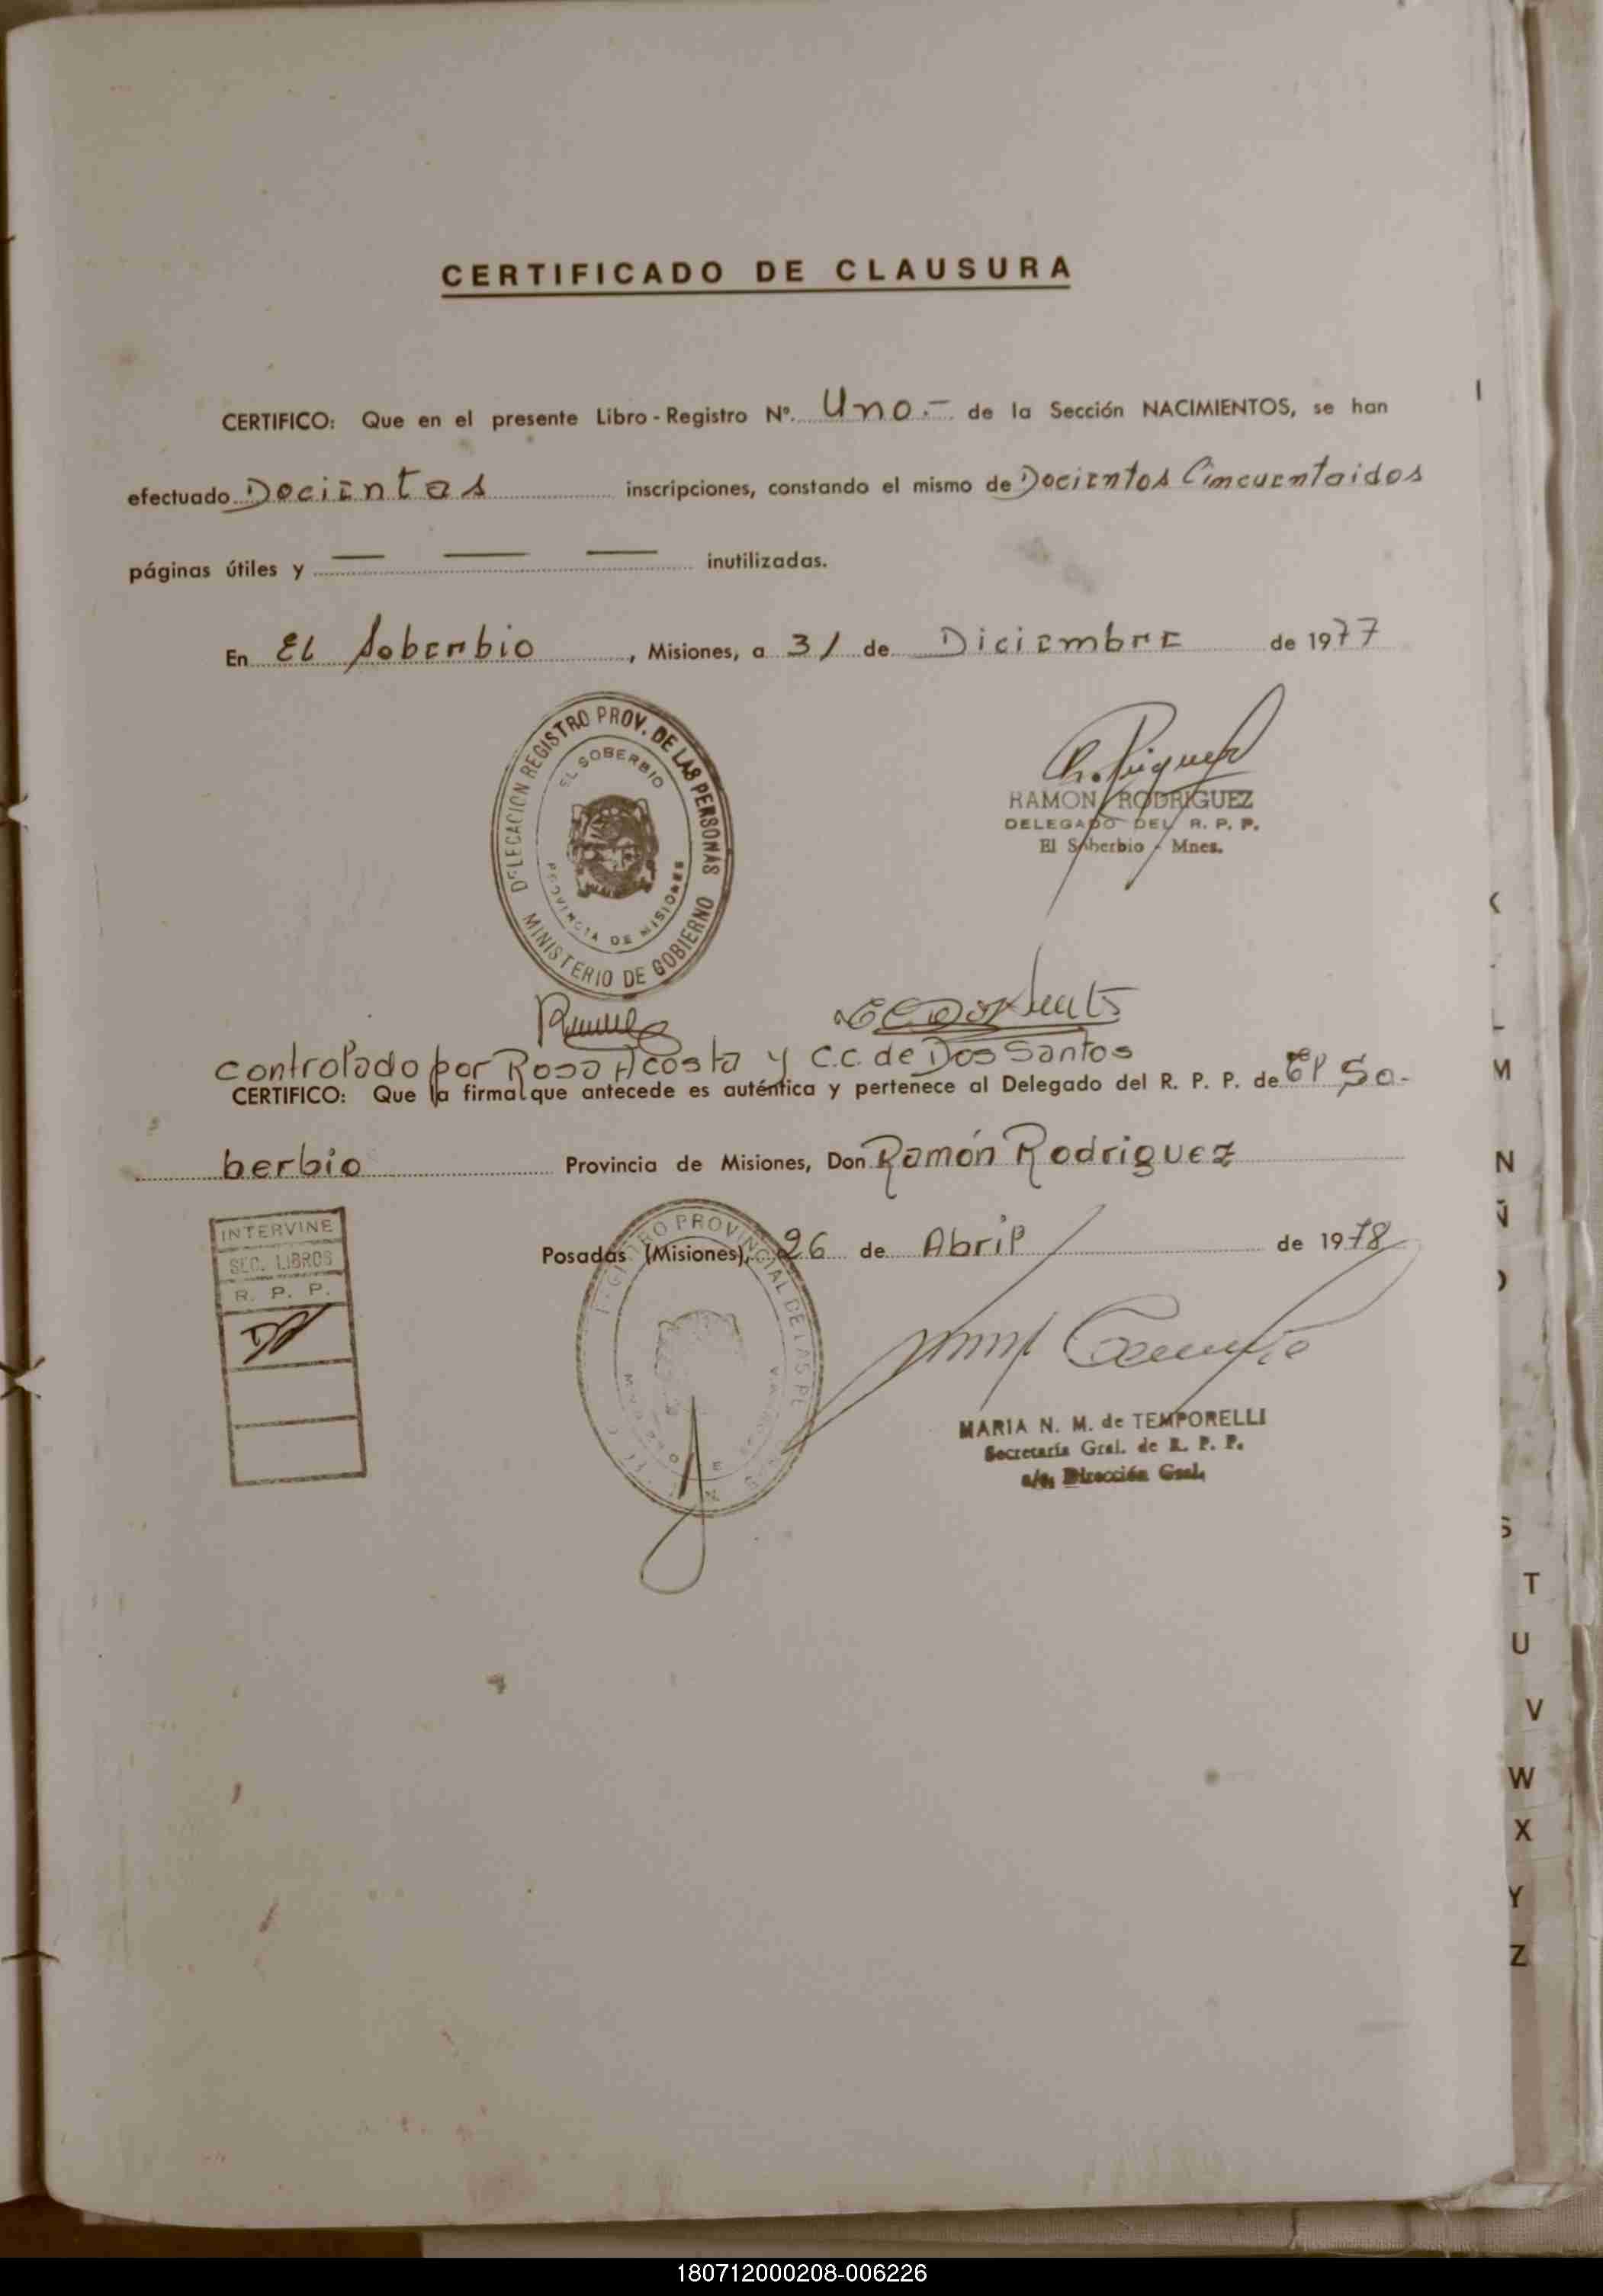 CERTIFICADO DE CLAUSURA
CERTIFICO: Que en el presente Libro - Registro Nº. Uno.- de la Sección NACIMIENTOS, se han
efectuado Docientas inscripciones, constando el mismo de Docientos Cincuentaidos
páginas útiles y — — — inutilizadas.
En El Soberbio, Misiones, a 31 de Diciembre de 1977
DELEGACION REGISTRO PROV. DE LAS PERSONAS
EL SOBERBIO
PROVINCIA DE MISIONES
MINISTERIO DE GOBIERNO
RAMON RODRIGUEZ
DELEGADO DEL R. P. P.
El Soberbio - Mnes.
controlado por Rosa Acosta y C.C. de Dos Santos
CERTIFICO: Que la firma que antecede es auténtica y pertenece al Delegado del R. P. P. de El So-
berbio Provincia de Misiones, Don Ramón Rodriguez
Posadas (Misiones), 26 de Abril de 1978
INTERVINE
SEC. LIBROS
R. P. P.
MARIA N. M. de TEMPORELLI
Secretaría Gral. de R. P. P.
a/c. Dirección Gral.
I
K
L
M
N
Ñ
O
S
T
U
V
W
X
Y
Z
180712000208-006226